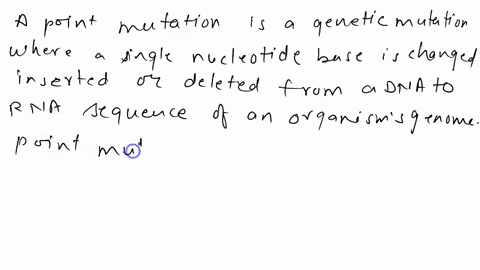 A point mutation is a genetic mutation
where a single nucleotide base is changed
inserted or deleted from a DNA to
RNA sequence of an organism's genome.
point mut